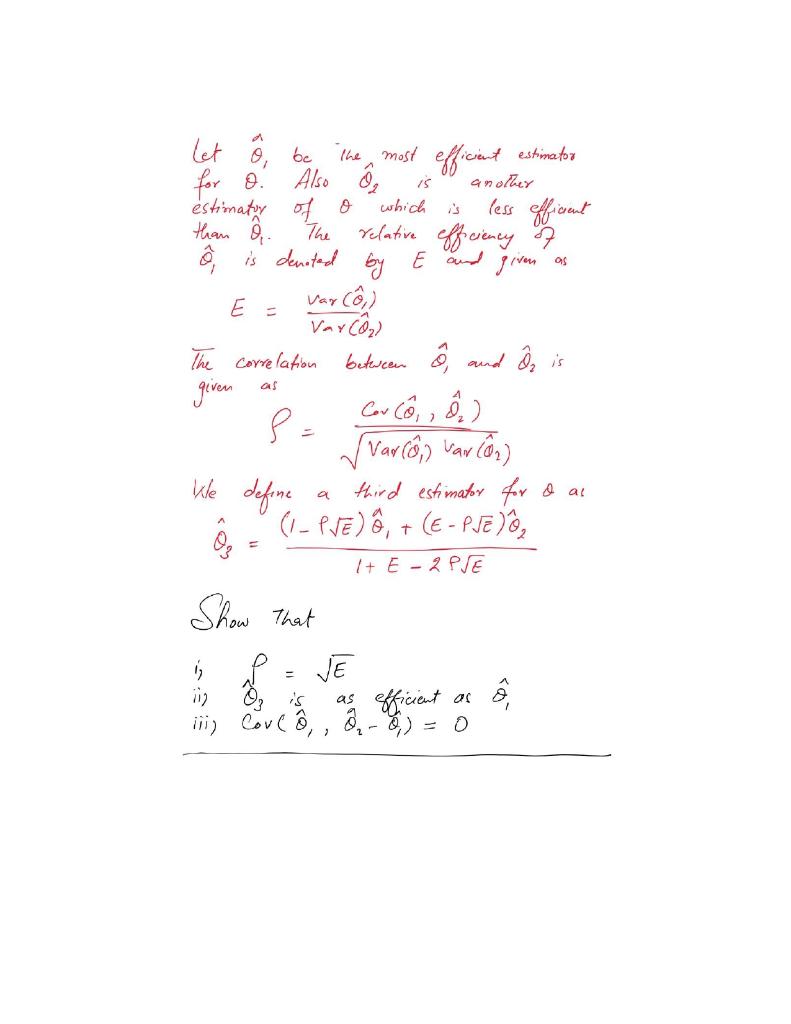 Let θ̂₁ be the most efficient estimator
for θ. Also θ̂₂ is another
estimator of θ which is less efficient
than θ̂₁. The relative efficiency of
θ̂₁ is denoted by E and given as
E = Var(θ̂₁) / Var(θ̂₂)
The correlation between θ̂₁ and θ̂₂ is
given as
ρ = Cov(θ̂₁, θ̂₂) / √(Var(θ̂₁) Var(θ̂₂))
We define a third estimator for θ as
θ̂₃ = ((1 - ρ√E) θ̂₁ + (E - ρ√E) θ̂₂) / (1 + E - 2ρ√E)
Show That
i) ρ = √E
ii) θ̂₃ is as efficient as θ̂₁
iii) Cov(θ̂₁, θ̂₂ - θ̂₁) = 0